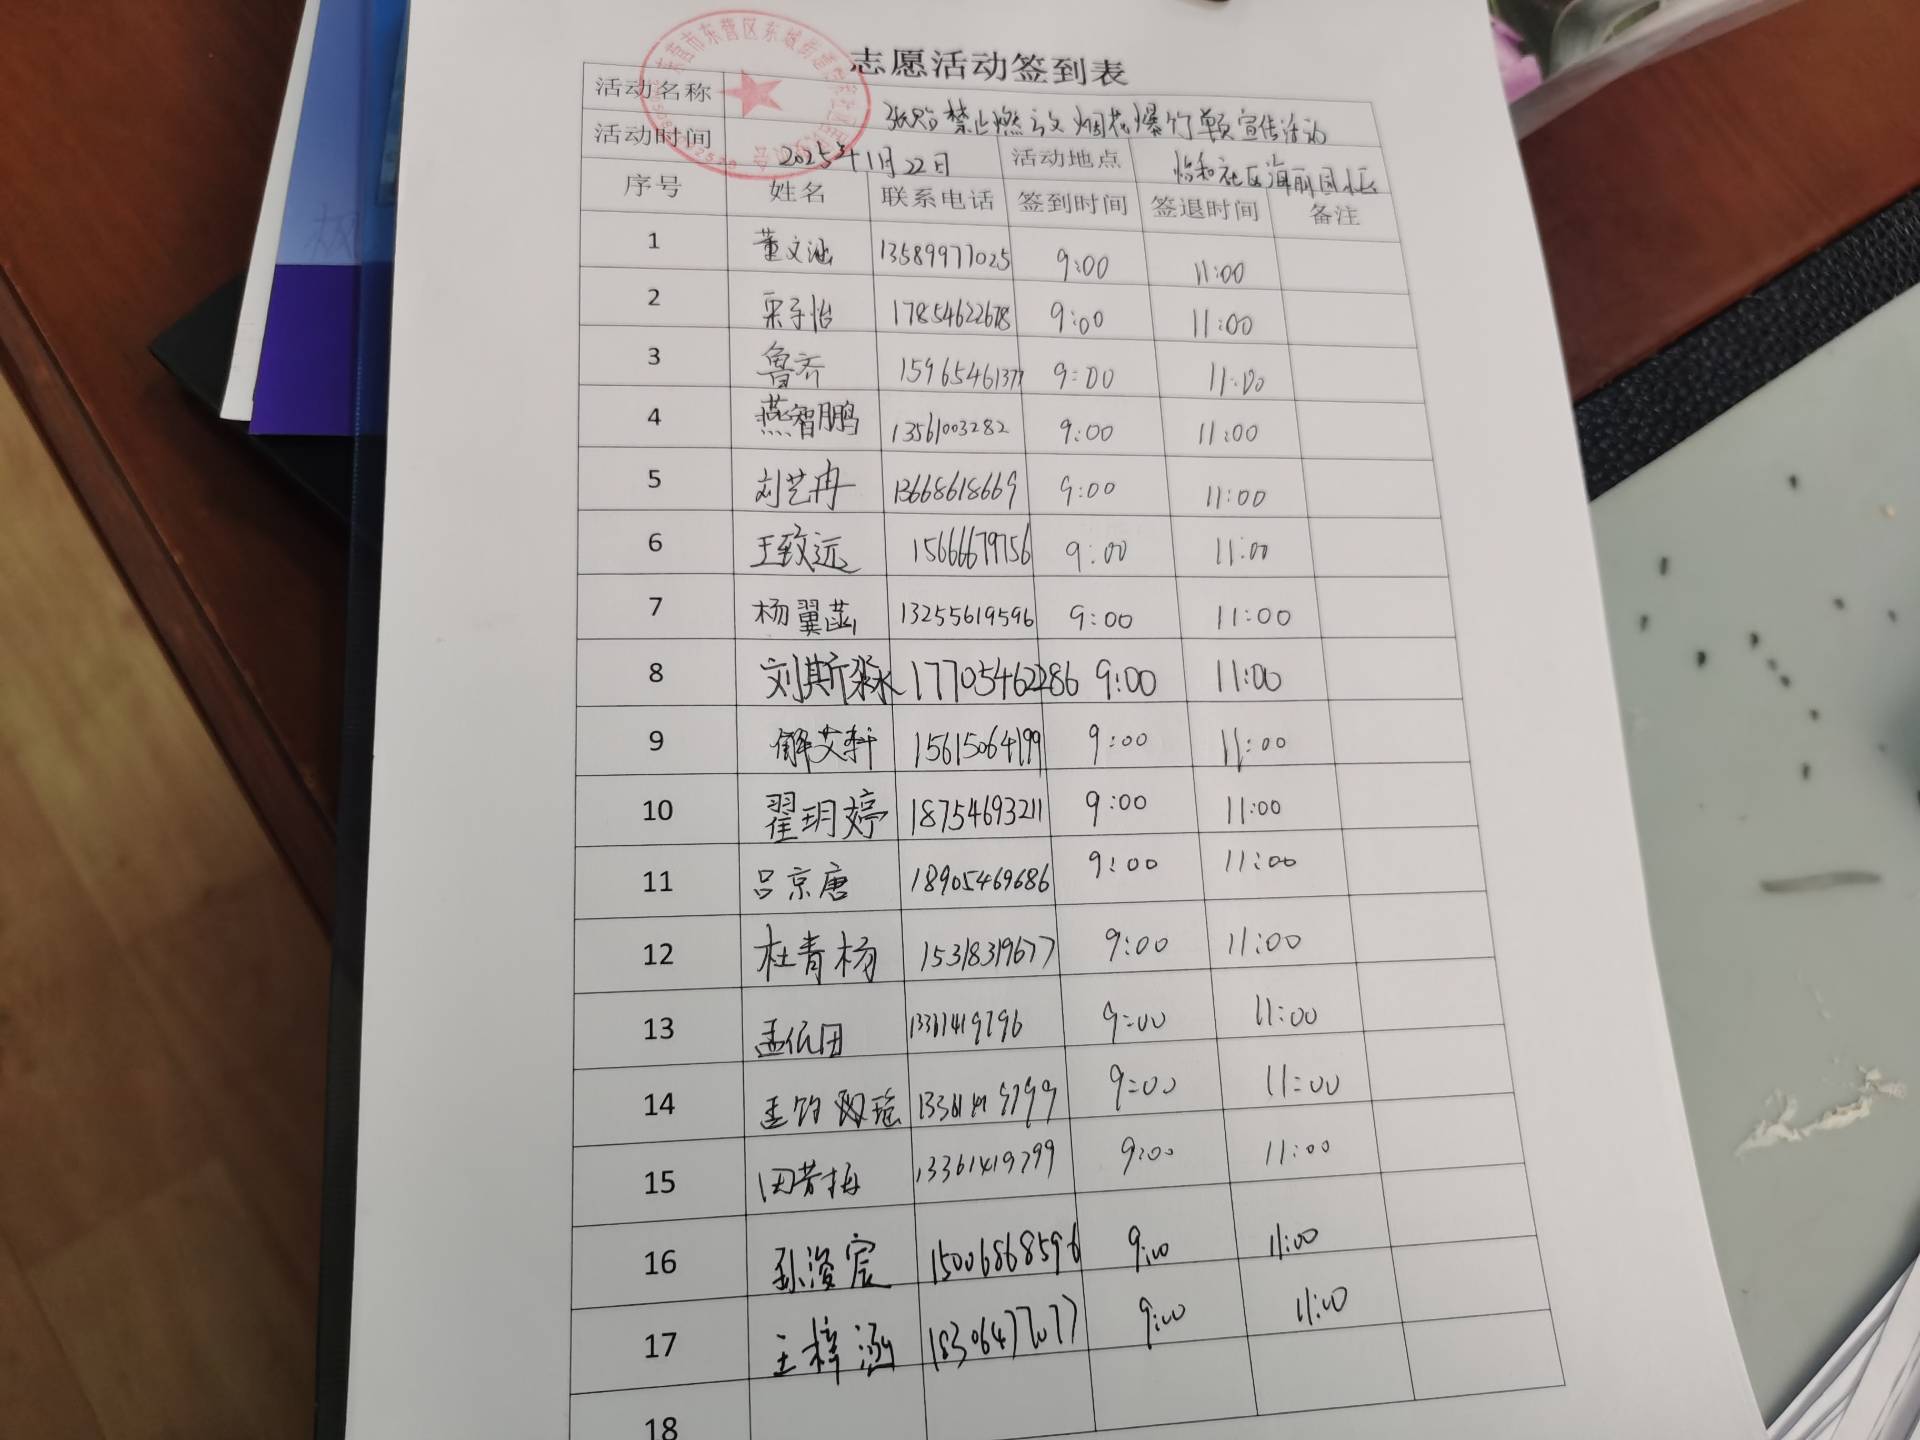 志愿活动签到表
活动名称 张贴禁止燃放烟花爆竹单页宣传活动
活动时间 2025年1月22日 活动地点 怡和社区海丽园小区
序号 姓名 联系电话 签到时间 签退时间 备注
1 董文涵 13589977025 9:00 11:00
2 宋子怡 17854622678 9:00 11:00
3 鲁齐 15965461377 9:00 11:00
4 燕智鹏 13561003282 9:00 11:00
5 刘艺冉 13668618669 9:00 11:00
6 王致远 15666679756 9:00 11:00
7 杨翼菡 13255619596 9:00 11:00
8 刘斯淼 17705462286 9:00 11:00
9 解艾轩 15615064199 9:00 11:00
10 翟玥婷 18754693211 9:00 11:00
11 吕京唐 18905469686 9:00 11:00
12 杜青杨 15318319677 9:00 11:00
13 9:00 11:00
14 9:00 11:00
15 田芳梅 13361419799 9:00 11:00
16 孙浚宸 15006868596 9:00 11:00
17 王梓涵 18306477077 9:00 11:00
18